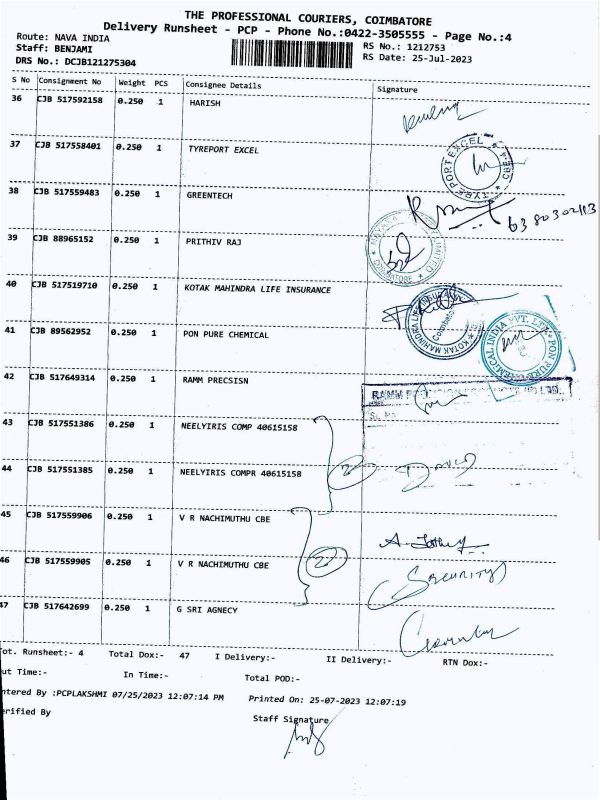 THE PROFESSIONAL COURIERS, COIMBATORE
Delivery Runsheet - PCP - Phone No.:0422-3505555 - Page No.:4
Route: NAVA INDIA RS No.: 1212753
Staff: BENJAMI RS Date: 25-Jul-2023
DRS No.: DCJB121275304
S No Consignment No Weight PCS Consignee Details Signature
36 CJB 517592158 0.250 1 HARISH
37 CJB 517558401 0.250 1 TYREPORT EXCEL
TYRE PORT EXCEL
38 CJB 517559483 0.250 1 GREENTECH
39 CJB 88965152 0.250 1 PRITHIV RAJ
40 CJB 517519710 0.250 1 KOTAK MAHINDRA LIFE INSURANCE
KOTAK MAHINDRA LIFE
41 CJB 89562952 0.250 1 PON PURE CHEMICAL
PON PURE CHEMICAL INDIA PVT. LTD.
42 CJB 517649314 0.250 1 RAMM PRECSISN
RAMM LTD.
43 CJB 517551386 0.250 1 NEELYIRIS COMP 40615158
44 CJB 517551385 0.250 1 NEELYIRIS COMPR 40615158
2 DAVID
45 CJB 517559906 0.250 1 V R NACHIMUTHU CBE
46 CJB 517559905 0.250 1 V R NACHIMUTHU CBE
2 (SECURITY)
47 CJB 517642699 0.250 1 G SRI AGNECY
Tot. Runsheet:- 4 Total Dox:- 47 I Delivery:- II Delivery:- RTN Dox:-
Out Time:- In Time:- Total POD:-
Entered By :PCPLAKSHMI 07/25/2023 12:07:14 PM Printed On: 25-07-2023 12:07:19
Verified By Staff Signature